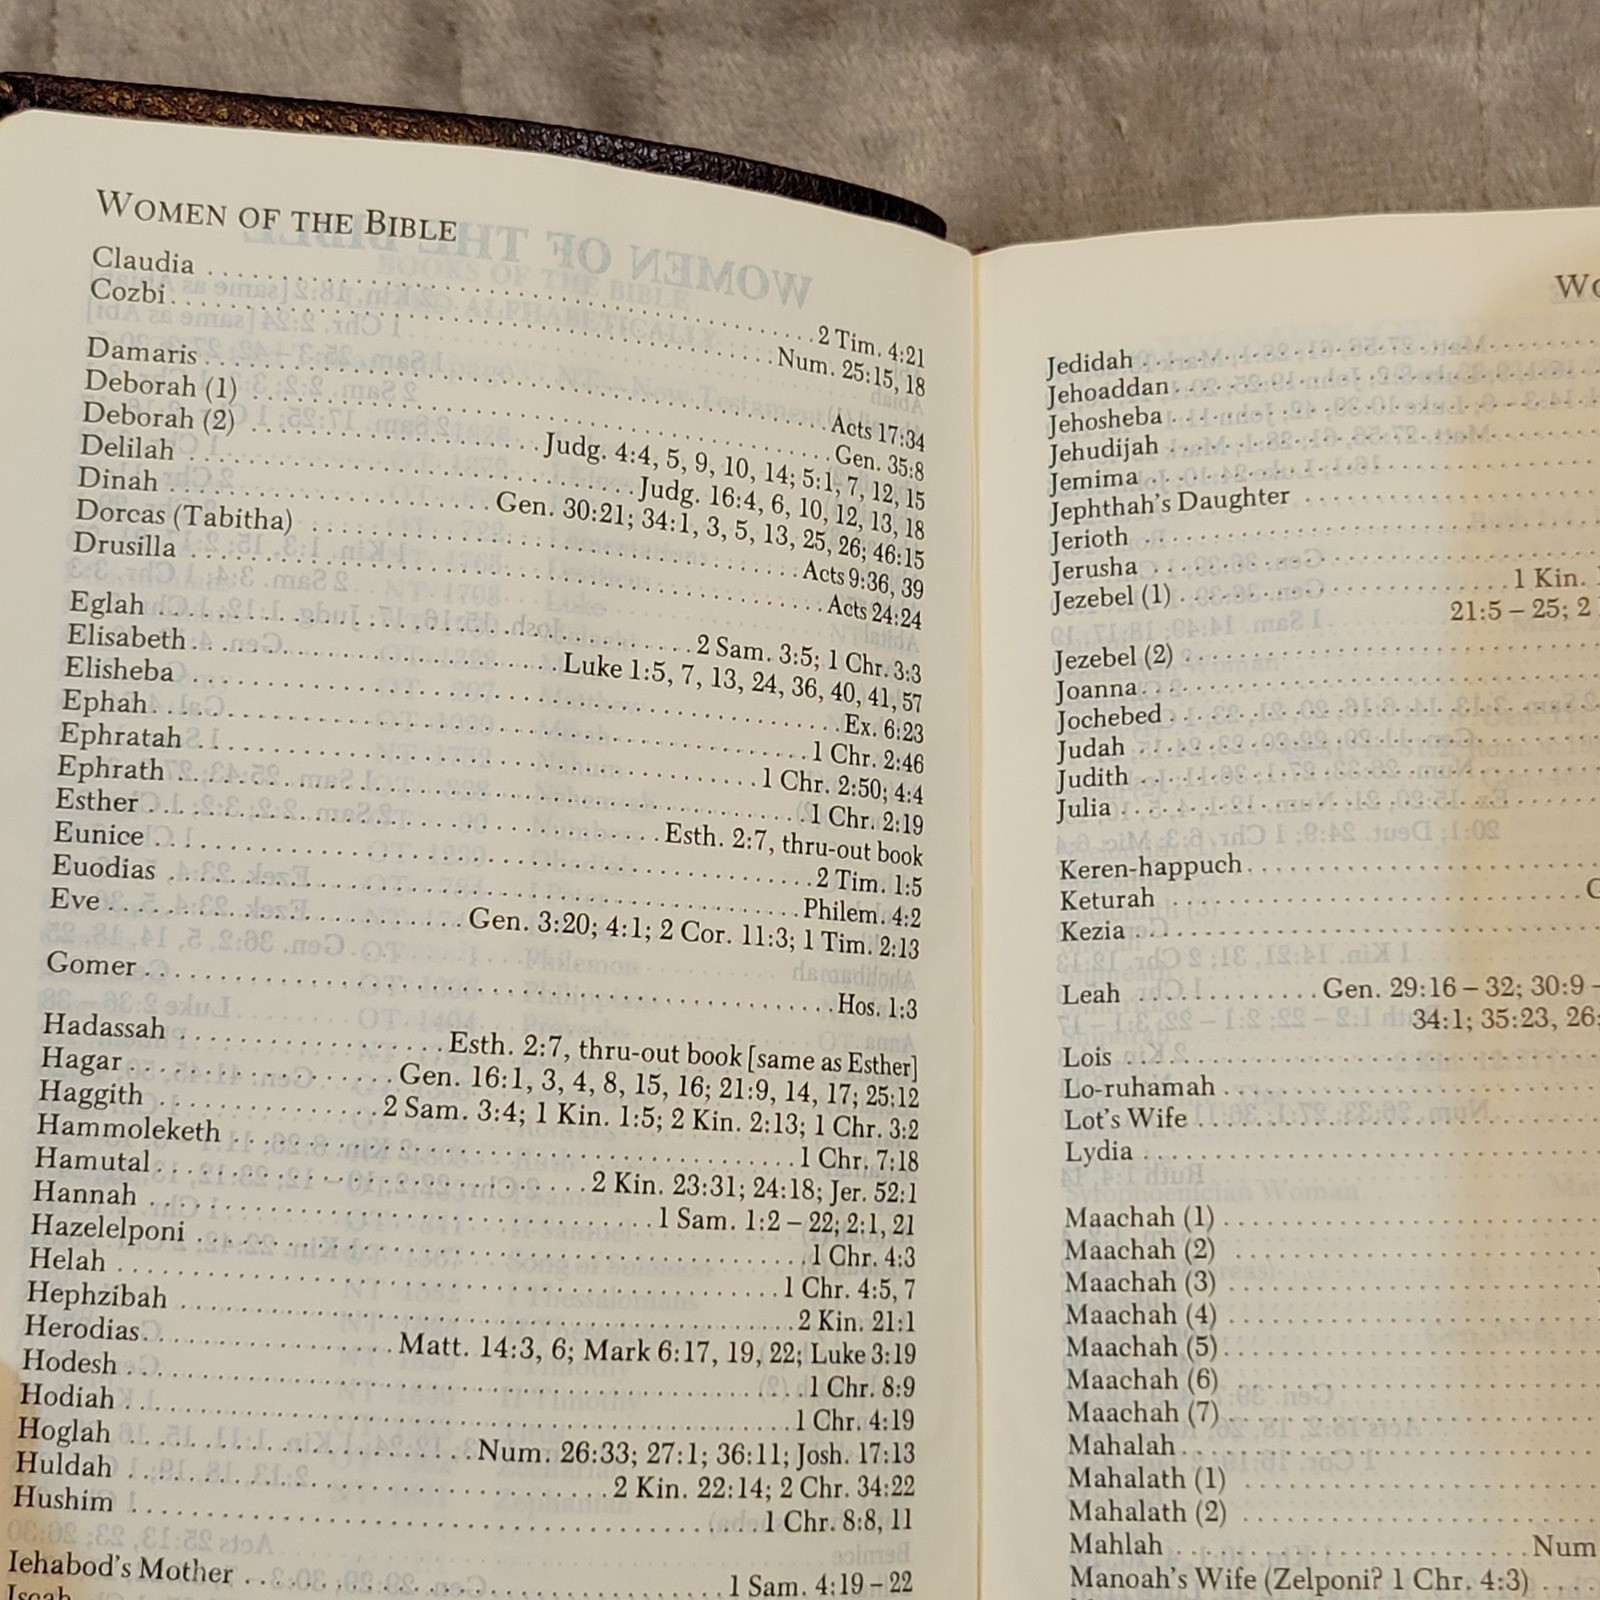 WOMEN OF THE BIBLE
Claudia ........ 2 Tim. 4:21
Cozbi ........ Num. 25:15, 18
Damaris ........ Acts 17:34
Deborah (1) ........ Gen. 35:8
Deborah (2) ........ Judg. 4:4, 5, 9, 10, 14; 5:1, 7, 12, 15
Delilah ........ Judg. 16:4, 6, 10, 12, 13, 18
Dinah ........ Gen. 30:21; 34:1, 3, 5, 13, 25, 26; 46:15
Dorcas (Tabitha) ........ Acts 9:36, 39
Drusilla ........ Acts 24:24
Eglah ........ 2 Sam. 3:5; 1 Chr. 3:3
Elisabeth ........ Luke 1:5, 7, 13, 24, 36, 40, 41, 57
Elisheba ........ Ex. 6:23
Ephah ........ 1 Chr. 2:46
Ephratah ........ 1 Chr. 2:50; 4:4
Ephrath ........ 1 Chr. 2:19
Esther ........ Esth. 2:7, thru-out book
Eunice ........ 2 Tim. 1:5
Euodias ........ Philem. 4:2
Eve ........ Gen. 3:20; 4:1; 2 Cor. 11:3; 1 Tim. 2:13
Gomer ........ Hos. 1:3
Hadassah ........ Esth. 2:7, thru-out book [same as Esther]
Hagar ........ Gen. 16:1, 3, 4, 8, 15, 16; 21:9, 14, 17; 25:12
Haggith ........ 2 Sam. 3:4; 1 Kin. 1:5; 2 Kin. 2:13; 1 Chr. 3:2
Hammoleketh ........ 1 Chr. 7:18
Hamutal ........ 2 Kin. 23:31; 24:18; Jer. 52:1
Hannah ........ 1 Sam. 1:2 – 22; 2:1, 21
Hazelelponi ........ 1 Chr. 4:3
Helah ........ 1 Chr. 4:5, 7
Hephzibah ........ 2 Kin. 21:1
Herodias ........ Matt. 14:3, 6; Mark 6:17, 19, 22; Luke 3:19
Hodesh ........ 1 Chr. 8:9
Hodiah ........ 1 Chr. 4:19
Hoglah ........ Num. 26:33; 27:1; 36:11; Josh. 17:13
Huldah ........ 2 Kin. 22:14; 2 Chr. 34:22
Hushim ........ 1 Chr. 8:8, 11
Iehabod's Mother ........ 1 Sam. 4:19 – 22
Jedidah ........
Jehoaddan ........
Jehosheba ........
Jehudijah ........
Jemima ........
Jephthah's Daughter ........
Jerioth ........
Jerusha ........
Jezebel (1) ........ 1 Kin.
21:5 – 25; 2
Jezebel (2) ........
Joanna ........
Jochebed ........
Judah ........
Judith ........
Julia ........
Keren-happuch ........
Keturah ........
Kezia ........
Leah ........ Gen. 29:16 – 32; 30:9 –
34:1; 35:23, 26;
Lois ........
Lo-ruhamah ........
Lot's Wife ........
Lydia ........
Maachah (1) ........
Maachah (2) ........
Maachah (3) ........
Maachah (4) ........
Maachah (5) ........
Maachah (6) ........
Maachah (7) ........
Mahalah ........
Mahalath (1) ........
Mahalath (2) ........
Mahlah ........ Num
Manoah's Wife (Zelponi? 1 Chr. 4:3) ....